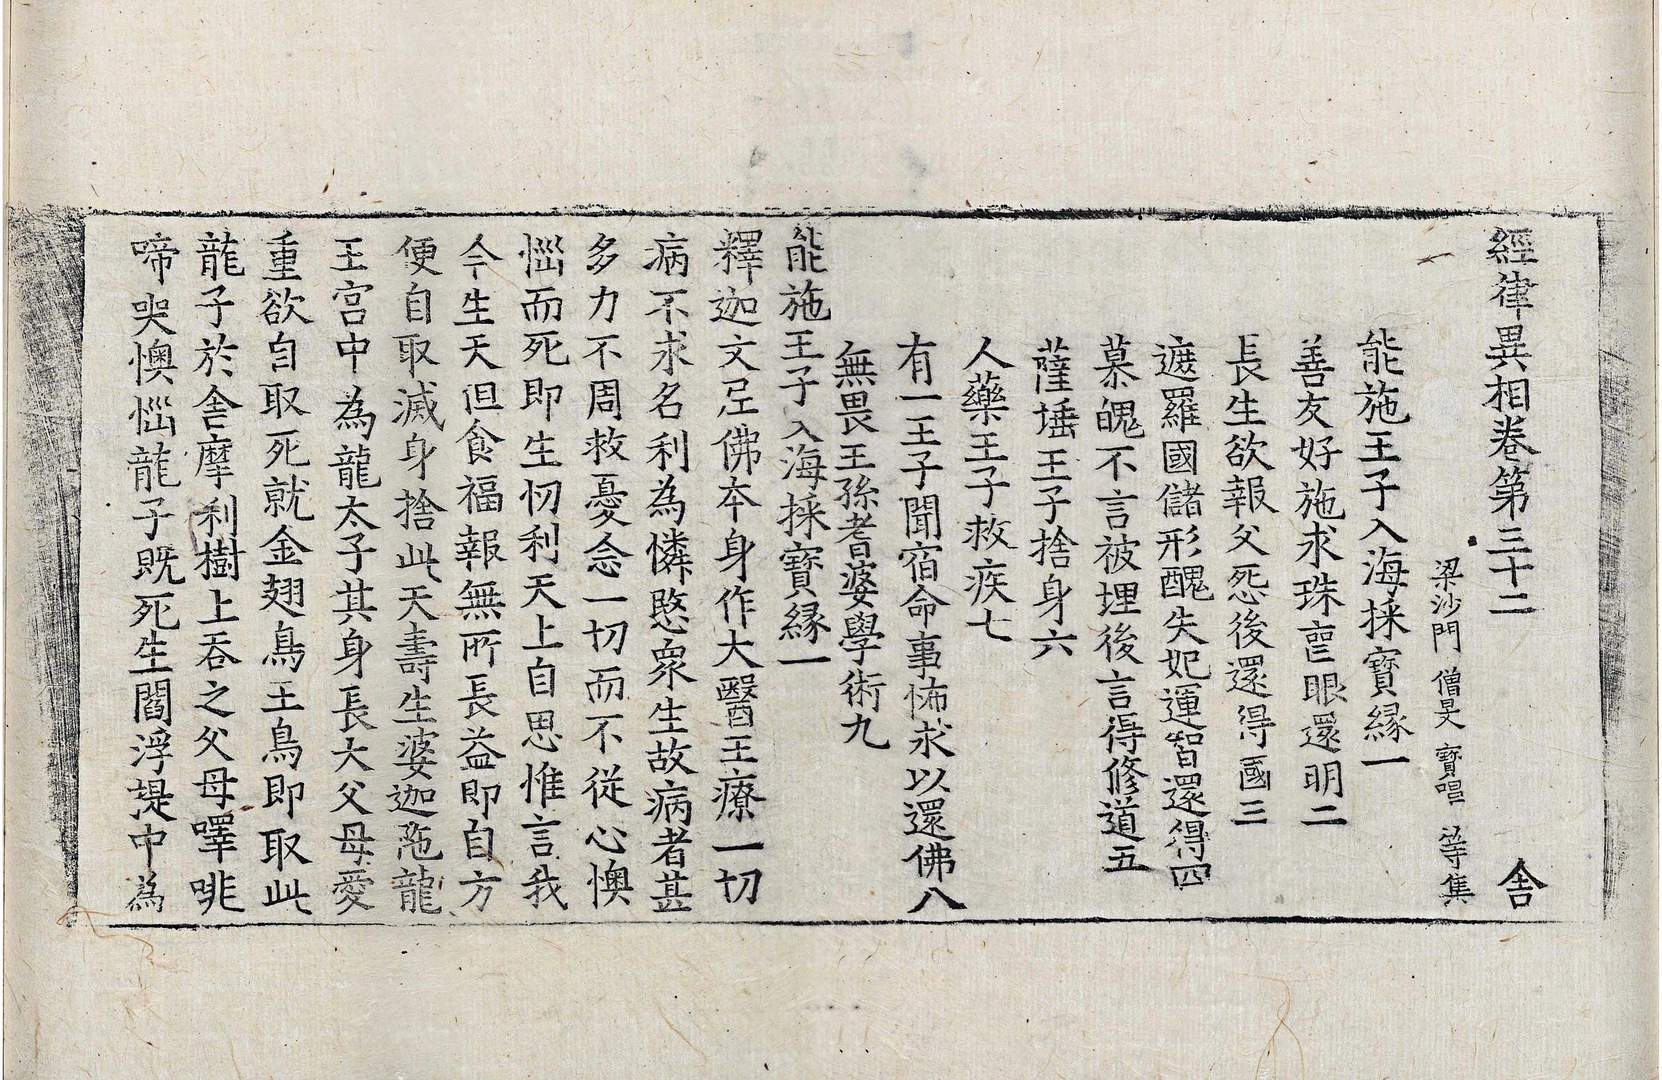 經律異相卷第三十二 舎
梁沙門 僧旻 寶唱 等集
能施王子入海採寶縁一
善友好施求珠䘮眼還明二
長生欲報父怨後還得國三
遮羅國儲形醜失妃運智還得四
慕魄不言被埋後言得修道五
薩埵王子捨身六
人藥王子救疾七
有一王子聞宿命事怖求以還佛八
無畏王孫耆婆學術九
能施王子入海採寶縁一
釋迦文尼佛本身作大醫王療一切
病不求名利為憐愍衆生故病者甚
多力不周救憂念一切而不從心懊
惱而死即生忉利天上自思惟言我
今生天但食福報無所長益即自方
便自取滅身捨此天壽生婆迦陁龍
王宫中為龍太子其身長大父母愛
重欲自取死就金翅鳥王鳥即取此
龍子於舎摩利樹上吞之父母嘷咷
啼哭懊惱龍子既死生閻浮提中為